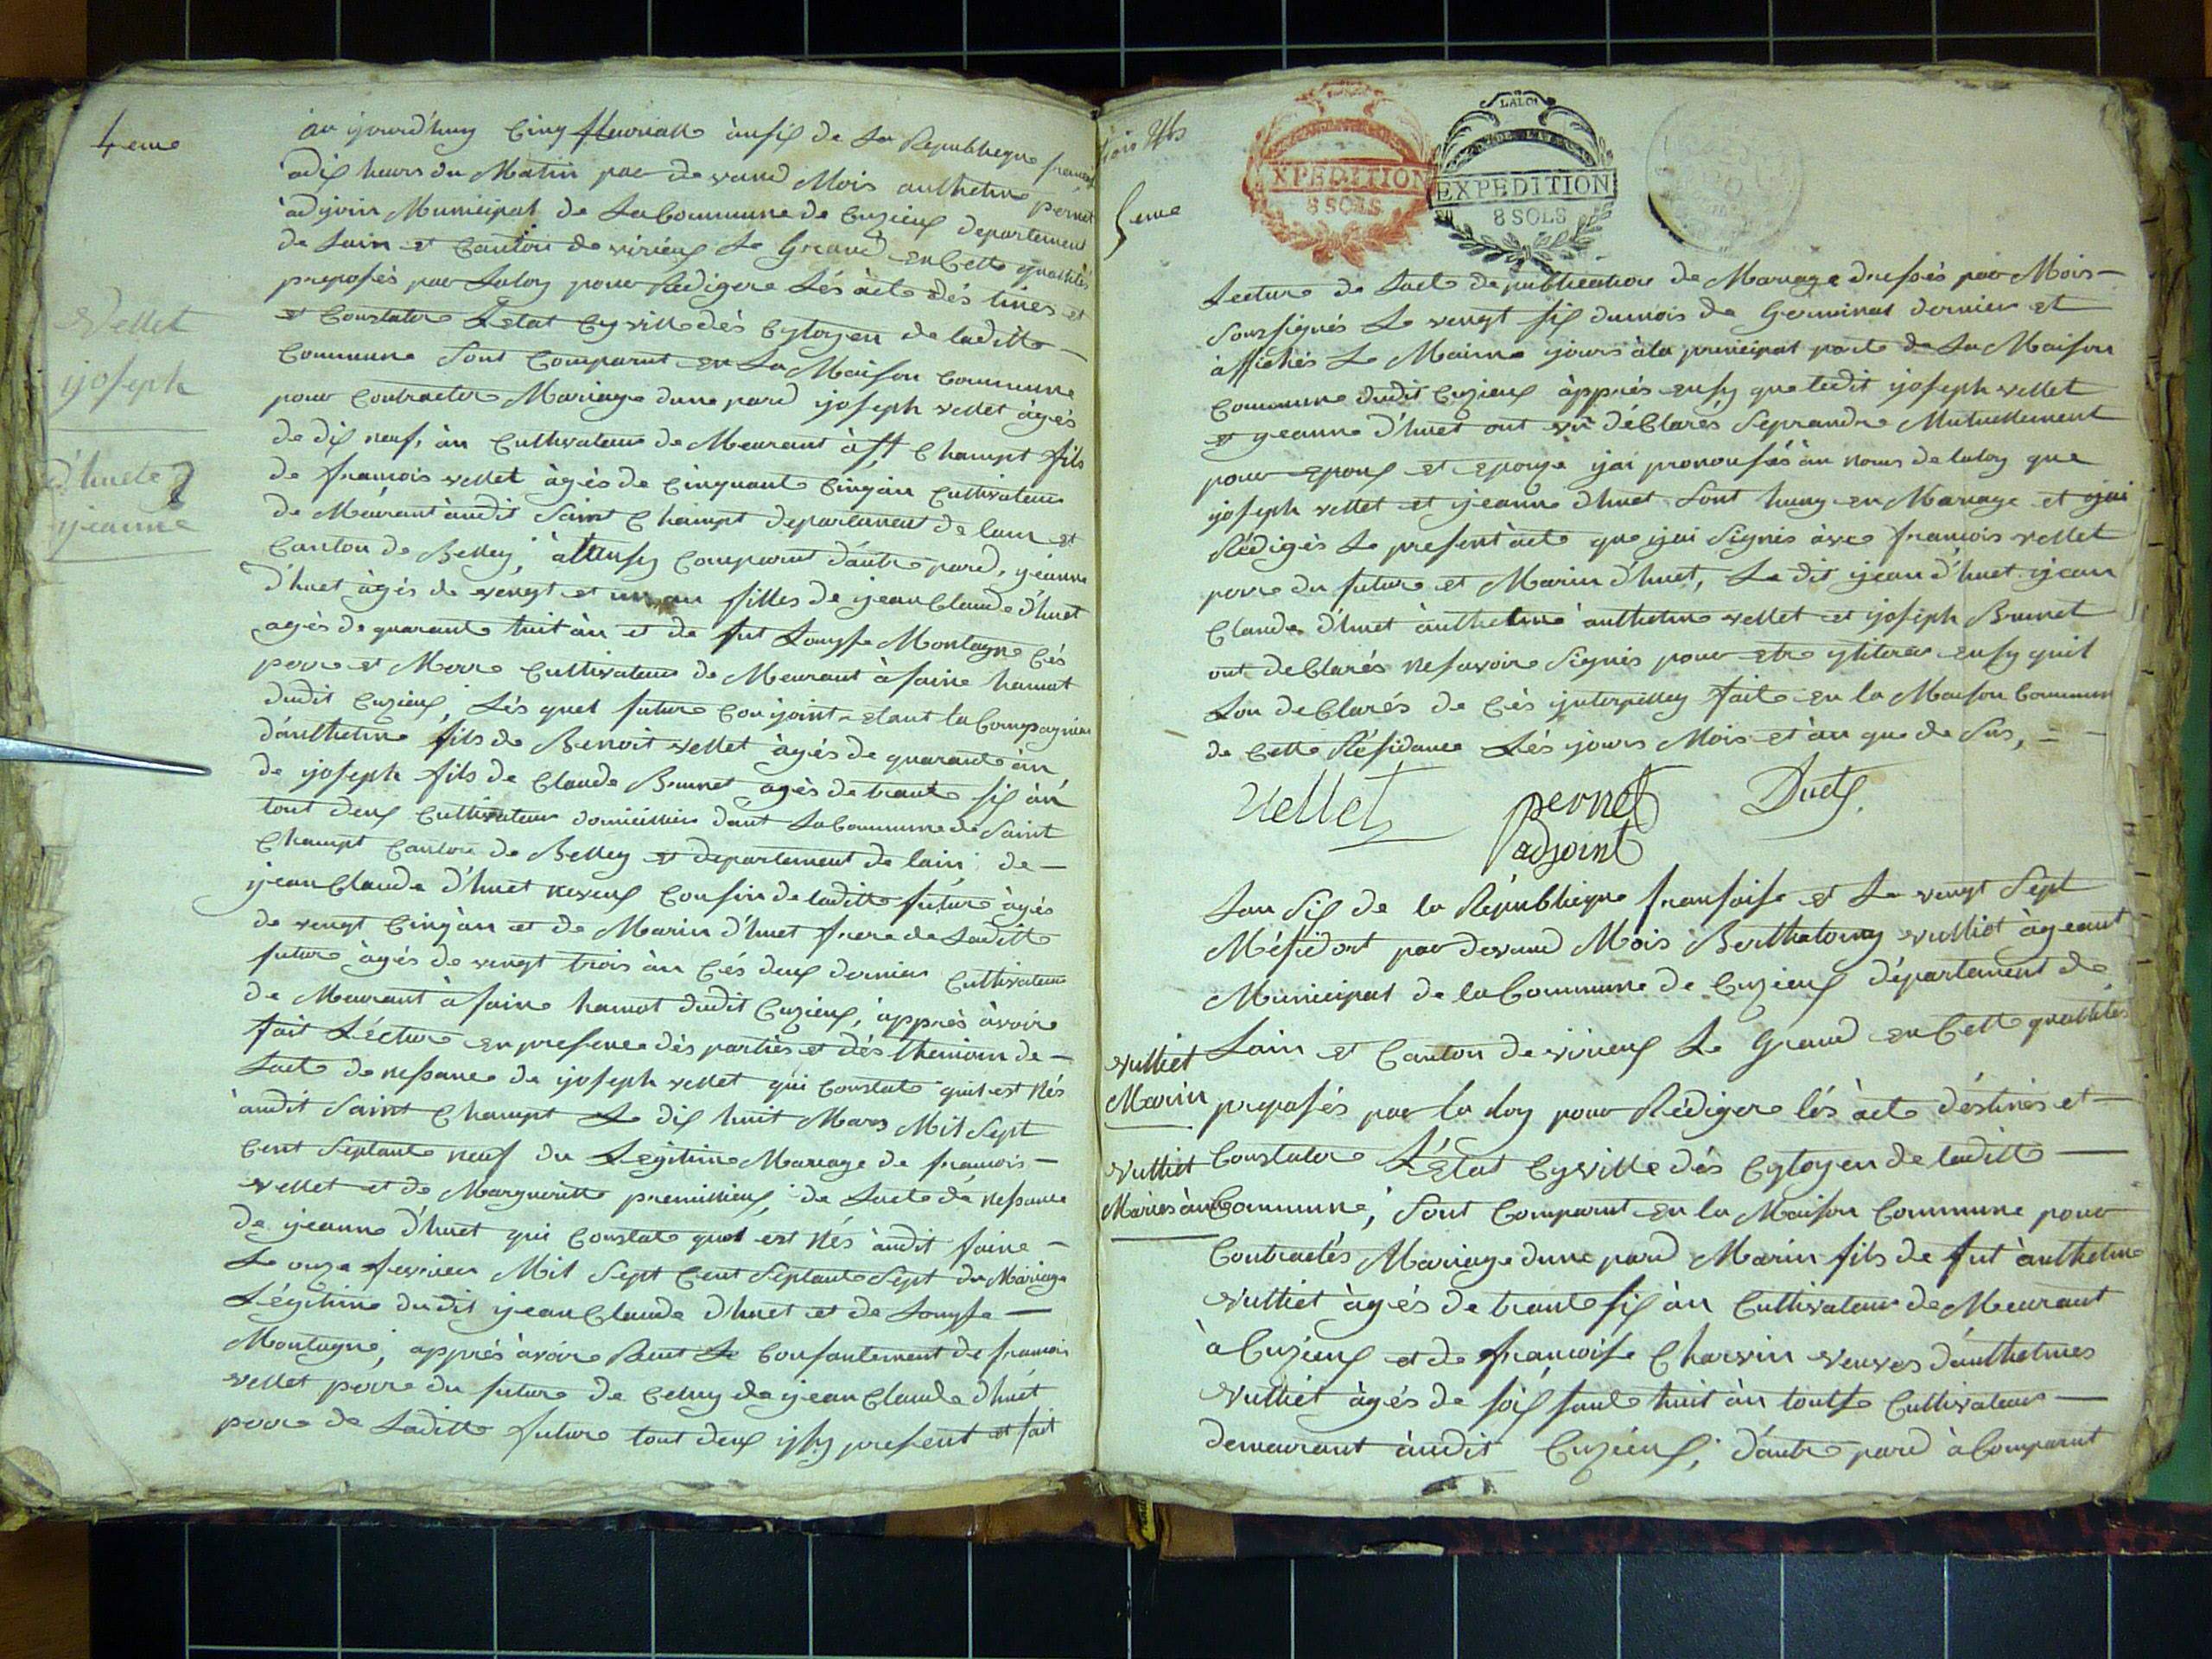 4eme
au ijourd'huy Cinq fleuriall ànsix de La Republieque francais
àdix heurs du Matin par devand Mois anthelme pernet
àdjoin Municipal de La Commune de Cuzieux departement
de Lain et Canton de virieux Le Grand en Cette quallités
preposés par Laloy pour Rédigere Lés àcte déstinés et
et Constatere L'état Cyville dés Cytoyen de laditte –
Commune sont Comparut en La Maison Commune
pour Contractere Mariage dune pard ijoseph vellet àgés
de dix neuf àn Cultivateur de Meurant à st Champt fils
de francois vellet àgés de Cinquante Cinq àn Cultivateur
de Meurant àudit Saint Champt departement de lain et
Canton de Belley, à Comparut d'autre pard, ijeanne
d'huet àgés de vengt et un an filles de ijean Claude d'huet
agés de quarante huit àn et de fut Louysse Montagne Cés
perre et Merre Cultivateur de Meurant à faine hamot
dudit Cuzieux, Lés quel future Conijoint etant
d'anthelme fils de Benoit vellet àgés de quarante àn
de ijoseph fils de Claude Brunet agés de trante six àn
tout deux Cultivateur domicillier dant La Commune de Saint
Champt Canton de Belley et departement de lain, de –
ijean Claude d'huet neveux Cousin de laditte future àgés
de vengt Cinq àn et de Marin d'huet frere de Laditte
future àgés de vengt trois àn Cés deux dernier Cultivateur
de Meurant à faine hamot dudit Cuzieux, àpprés àvoire
fait Lécture en presence dés partiés et dés themoin de –
Lacte de nessance de ijoseph vellet qui Constate quil est Nés
àudit Saint Champt Le dix huit Mars Mil Sept
Cent Septante neuf du Legitime Mariage de francois –
vellet et de Margueritte premillieux, de Lacte de nessance
de ijeanne d'huet qui Constate quel est Nés àudit faine –
Le onze fevrier Mil Sept Cent Septante Sept du Mariage
Légitime dudit ijean Claude d'huet et de Louysse –
Montagne, apprés àvoire Reçut Le Consantement de francois
vellet perre du future de Celuy de ijean Claude d'huet
perre de Laditte future tout deux ysy present et fait
Vellet
ijoseph
d'huet
ijeanne
5eme
EXPEDITION
8 SOLS
LA LOI
EXPEDITION
8 SOLS
Lecture de Lacte de publication de Mariage dressés par Mois –
Soussignés Le vengt six dumois de Germinal dernier et
àffichés Le Maime ijours àla principal porte de La Maison
Commune dudit Cuzieux àpprés ensy que ledit ijoseph vellet
et ijeanne d'huet ont déClarés Seprandre Mutuellement
pour Epoux et Epouze ijai pronousés àu noms de laloy que
ijoseph vellet et ijeanne d'huet Sont huny en Mariage et ijai
Rédigés Le present àcte que ijai Signés àvec francois vellet
perre du future et Marin d'huet, Le dit ijean d'huet ijean
Claude d'huet anthelme vellet et ijoseph Brunet
ont deClarés nesavoire Signés pour etre yliterer ensy quil
Lon deClarés de Cés ynterpelley fait en la Maison Commun
de Cette Résidance Lés ijours Mois et àn que de Sus, = –
Vellet
pernet
adjoint
Duet
Lan Six de la Republieque fransaise et Le vengt Sept
Mésidort par devand Mois Berthelomy vulliet àgeant
Municipal de la Commune de Cuzieux département de
Lain et Canton de virieux Le Grand en Cette quallités
preposés par la loy pour Rédigere lés àcte déstinés et –
Constatere L'Etat Cyville dés Cytoyen de laditte –
Commune, Sont Comparut en la Maison Commune pour
Contractés Mariage dune pard Marin fils de fut ànthelme
vulliet àgés de trante six àn Cultivateur de Meurant
à Cuzieux et de francoise Charvin veuves d'anthelmes
vulliet àgés de soissante huit àn toutte Cultivateur –
demeurant àudit Cuzieux, d'autre pard à Comparut
vulliet
Marin
vulliet